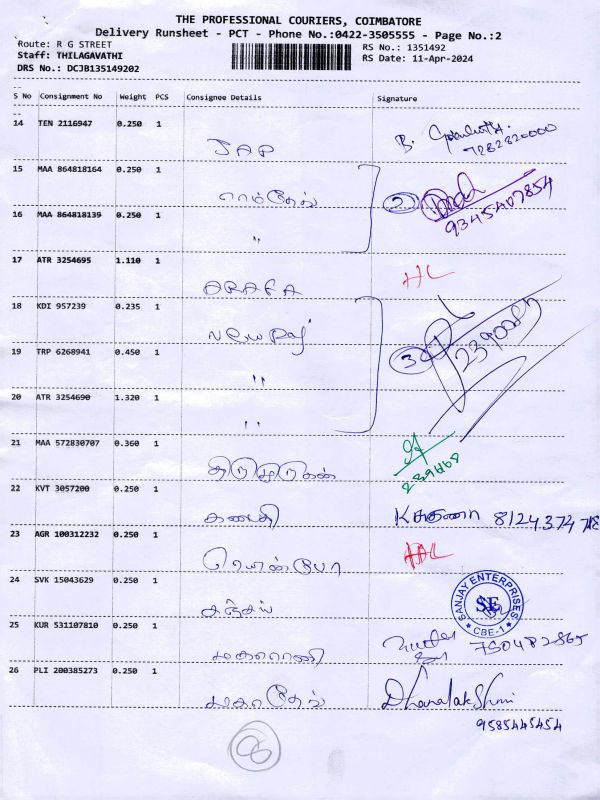 THE PROFESSIONAL COURIERS, COIMBATORE
Delivery Runsheet - PCT - Phone No.:0422-3505555 - Page No.:2
Route: R G STREET
RS No.: 1351492
Staff: THILAGAVATHI
RS Date: 11-Apr-2024
DRS No.: DCJB135149202
S No Consignment No Weight PCS Consignee Details Signature
14 TEN 2116947 0.250 1
7282820000
JAP
15 MAA 864818164 0.250 1
ராம்தேவ்
2
9345407854
16 MAA 864818139 0.250 1
"
17 ATR 3254695 1.110 1
HL
ARAFA
18 KDI 957239 0.235 1
New Raj
3
19 TRP 6268941 0.450 1
"
20 ATR 3254690 1.320 1
"
21 MAA 572830707 0.360 1
திருமுருகன்
22 KVT 3057200 0.250 1
கணபதி
23 AGR 100312232 0.250 1
ரெயின்போ
24 SVK 15043629 0.250 1
சஞ்சய்
SANJAY ENTERPRISES
SE
CBE-1
25 KUR 531107810 0.250 1
மகாராணி
26 PLI 200385273 0.250 1
மகாதேவ்
Dhanalakshmi
9585445454